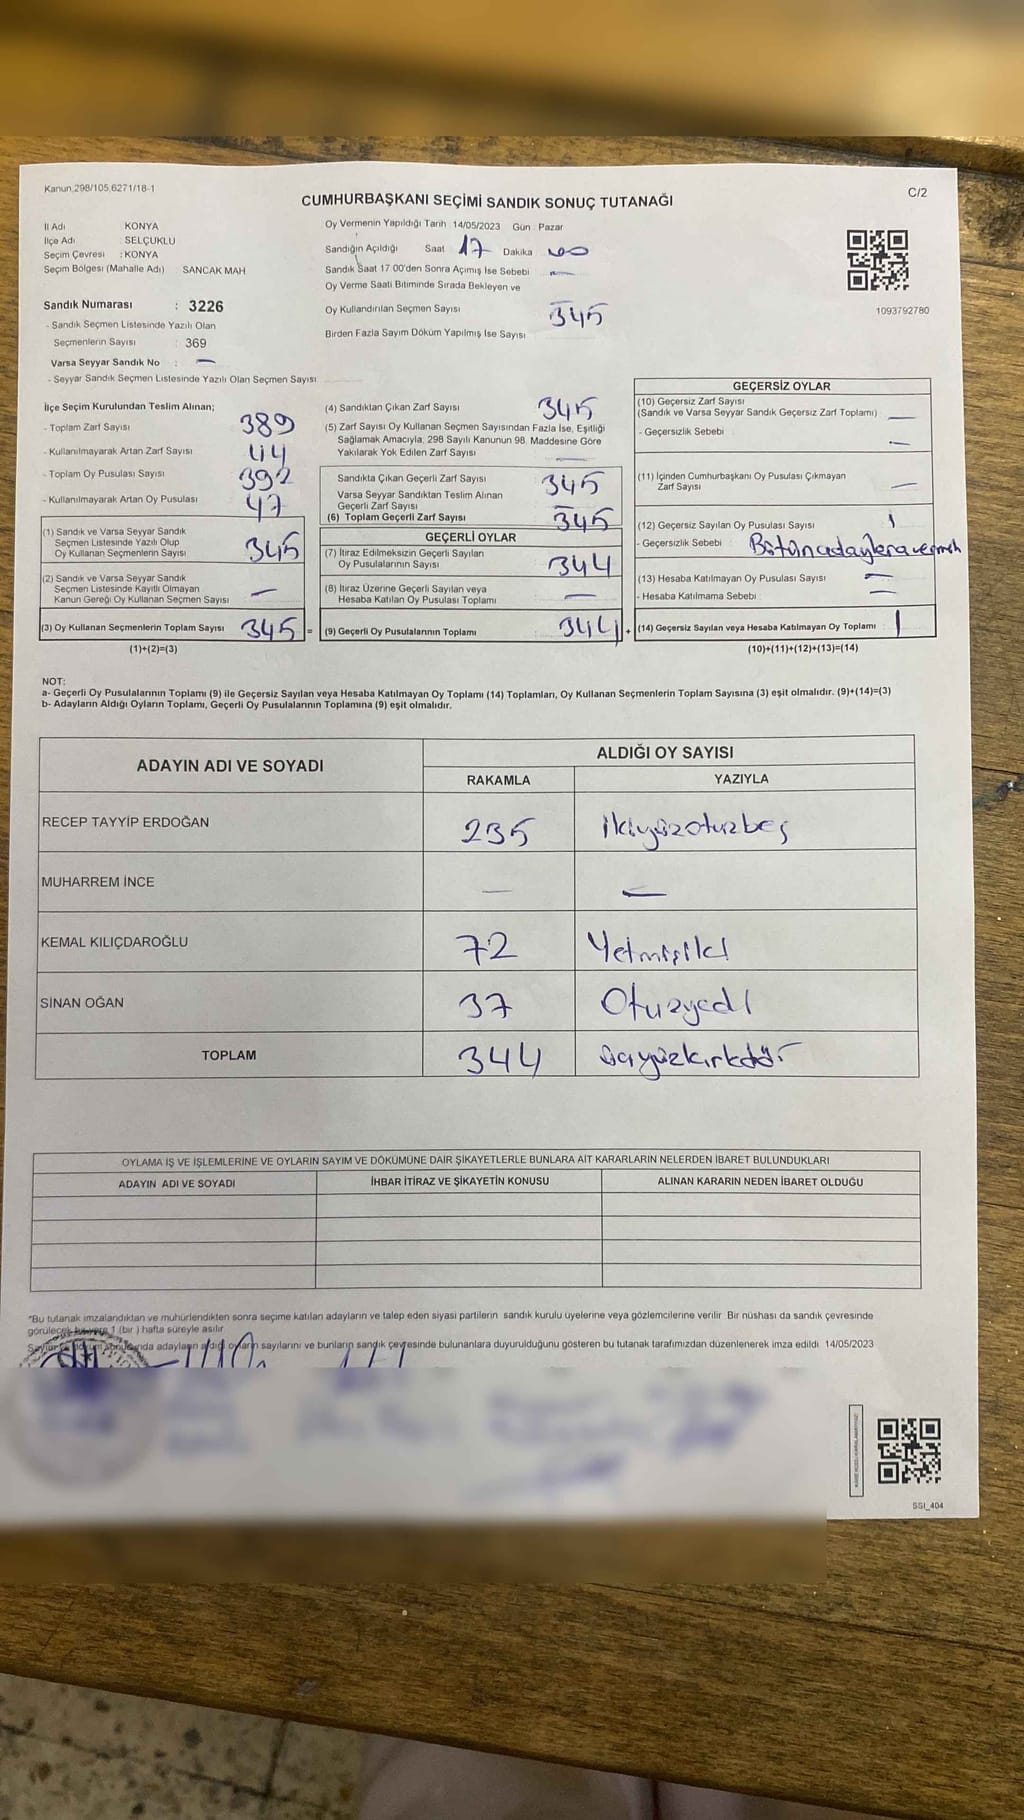 Kanun 298/105,6271/18-1
C/2
CUMHURBAŞKANI SEÇİMİ SANDIK SONUÇ TUTANAĞI
İl Adı KONYA
İlçe Adı : SELÇUKLU
Seçim Çevresi : KONYA
Seçim Bölgesi (Mahalle Adı) SANCAK MAH
Sandık Numarası : 3226
- Sandık Seçmen Listesinde Yazılı Olan
Seçmenlerin Sayısı : 369
Varsa Seyyar Sandık No : —
- Seyyar Sandık Seçmen Listesinde Yazılı Olan Seçmen Sayısı
Oy Vermenin Yapıldığı Tarih : 14/05/2023 Gün : Pazar
Sandığın Açıldığı Saat 17 Dakika 00
Sandık Saat 17 00'den Sonra Açımış İse Sebebi —
Oy Verme Saati Bitiminde Sırada Bekleyen ve
Oy Kullandırılan Seçmen Sayısı 345
Birden Fazla Sayım Döküm Yapılmış İse Sayısı
1093792780
İlçe Seçim Kurulundan Teslim Alınan;
- Toplam Zarf Sayısı 389
- Kullanılmayarak Artan Zarf Sayısı 44
- Toplam Oy Pusulası Sayısı 392
- Kullanılmayarak Artan Oy Pusulası 47
(1) Sandık ve Varsa Seyyar Sandık
Seçmen Listesinde Yazılı Olup
Oy Kullanan Seçmenlerin Sayısı 345
(2) Sandık ve Varsa Seyyar Sandık
Seçmen Listesinde Kayıtlı Olmayan
Kanun Gereği Oy Kullanan Seçmen Sayısı —
(3) Oy Kullanan Seçmenlerin Toplam Sayısı 345 =
(1)+(2)=(3)
(4) Sandıktan Çıkan Zarf Sayısı 345
(5) Zarf Sayısı Oy Kullanan Seçmen Sayısından Fazla İse, Eşitliği
Sağlamak Amacıyla, 298 Sayılı Kanunun 98. Maddesine Göre
Yakılarak Yok Edilen Zarf Sayısı —
Sandıkta Çıkan Geçerli Zarf Sayısı 345
Varsa Seyyar Sandıktan Teslim Alınan
Geçerli Zarf Sayısı
(6) Toplam Geçerli Zarf Sayısı 345
GEÇERLİ OYLAR
(7) İtiraz Edilmeksizin Geçerli Sayılan
Oy Pusulalarının Sayısı 344
(8) İtiraz Üzerine Geçerli Sayılan veya
Hesaba Katılan Oy Pusulası Toplamı —
(9) Geçerli Oy Pusulalarının Toplamı 344 +
GEÇERSİZ OYLAR
(10) Geçersiz Zarf Sayısı
(Sandık ve Varsa Seyyar Sandık Geçersiz Zarf Toplamı) —
- Geçersizlik Sebebi —
(11) İçinden Cumhurbaşkanı Oy Pusulası Çıkmayan
Zarf Sayısı —
(12) Geçersiz Sayılan Oy Pusulası Sayısı 1
- Geçersizlik Sebebi Bütün adaylara vermiş
(13) Hesaba Katılmayan Oy Pusulası Sayısı —
- Hesaba Katılmama Sebebi —
(14) Geçersiz Sayılan veya Hesaba Katılmayan Oy Toplamı : 1
(10)+(11)+(12)+(13)=(14)
NOT:
a- Geçerli Oy Pusulalarının Toplamı (9) ile Geçersiz Sayılan veya Hesaba Katılmayan Oy Toplamı (14) Toplamları, Oy Kullanan Seçmenlerin Toplam Sayısına (3) eşit olmalıdır. (9)+(14)=(3)
b- Adayların Aldığı Oyların Toplamı, Geçerli Oy Pusulalarının Toplamına (9) eşit olmalıdır.
ADAYIN ADI VE SOYADI
ALDIĞI OY SAYISI
RAKAMLA YAZIYLA
RECEP TAYYİP ERDOĞAN 235 ikiyüzotuzbeş
MUHARREM İNCE — —
KEMAL KILIÇDAROĞLU 72 Yetmişiki
SİNAN OĞAN 37 Otuzyedi
TOPLAM 344 üçyüzkırkdört
OYLAMA İŞ VE İŞLEMLERİNE VE OYLARIN SAYIM VE DÖKÜMÜNE DAİR ŞİKAYETLERLE BUNLARA AİT KARARLARIN NELERDEN İBARET BULUNDUKLARI
ADAYIN ADI VE SOYADI İHBAR İTİRAZ VE ŞİKAYETİN KONUSU ALINAN KARARIN NEDEN İBARET OLDUĞU
*Bu tutanak imzalandıktan ve mühürlendikten sonra seçime katılan adayların ve talep eden siyasi partilerin sandık kurulu üyelerine veya gözlemcilerine verilir Bir nüshası da sandık çevresinde
görülecek bir yere 1 (bir ) hafta süreyle asılır
adayların aldığı oyların sayılarını ve bunların sandık çevresinde bulunanlara duyurulduğunu gösteren bu tutanak tarafımızdan düzenlenerek imza edildi 14/05/2023
SSI_404